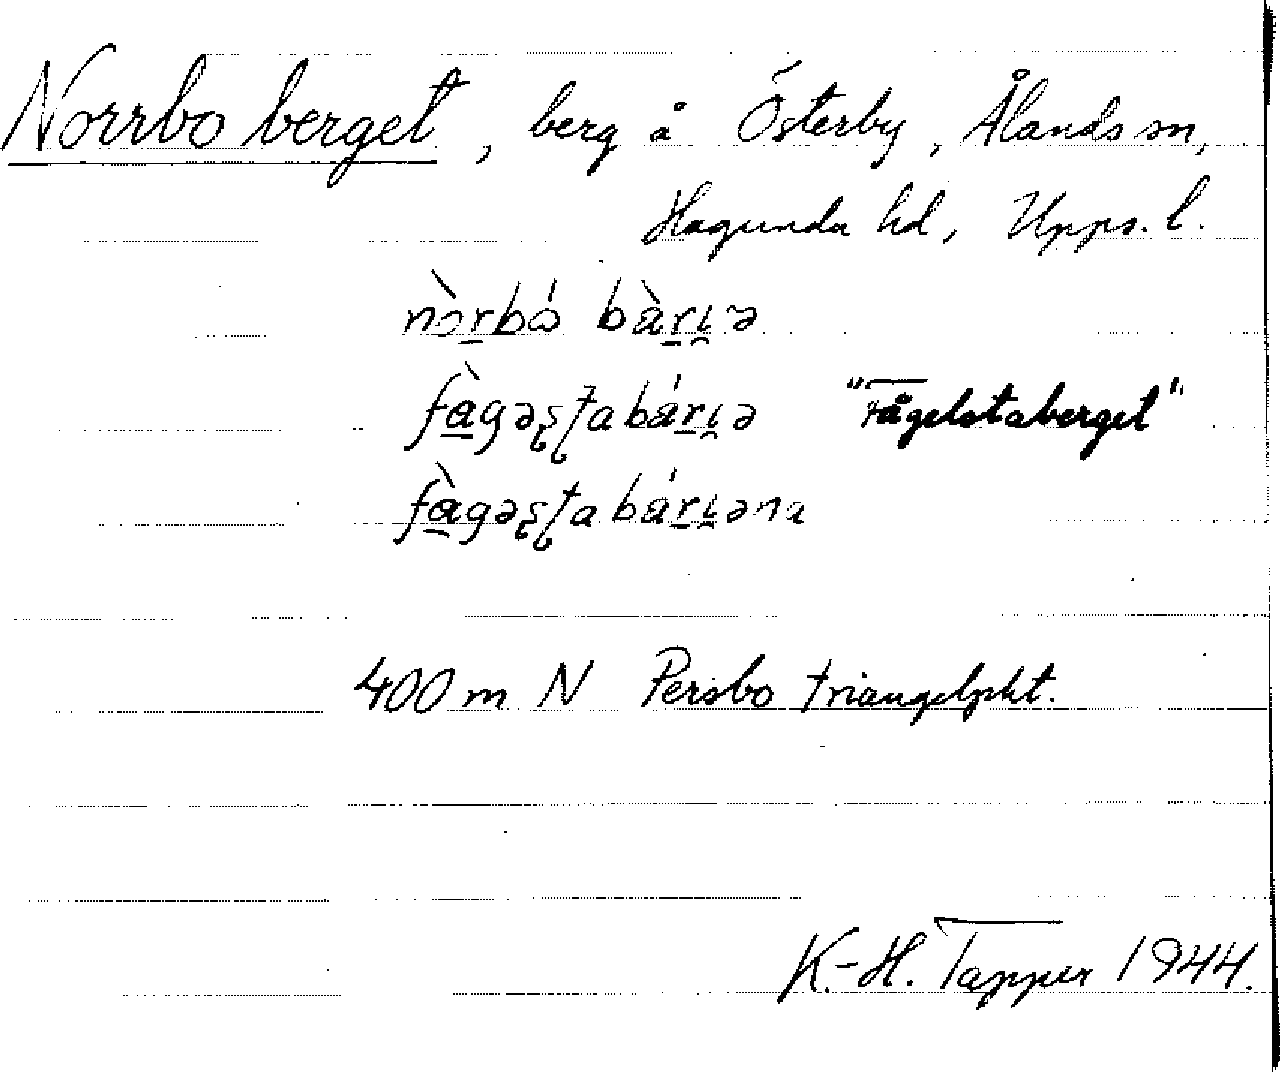 Norrbo berget, berg å Österby, Ålands sn,
Hagunda hd, Upps. l.
nɔ̀rbɷ́ bàri̯ə
fàgəʂʈabári̯ə "Fågelstaberget"
fàgəʂʈabári̯əna
400 m N Persbo triangelpkt.
K.-H. Tapper 1944.